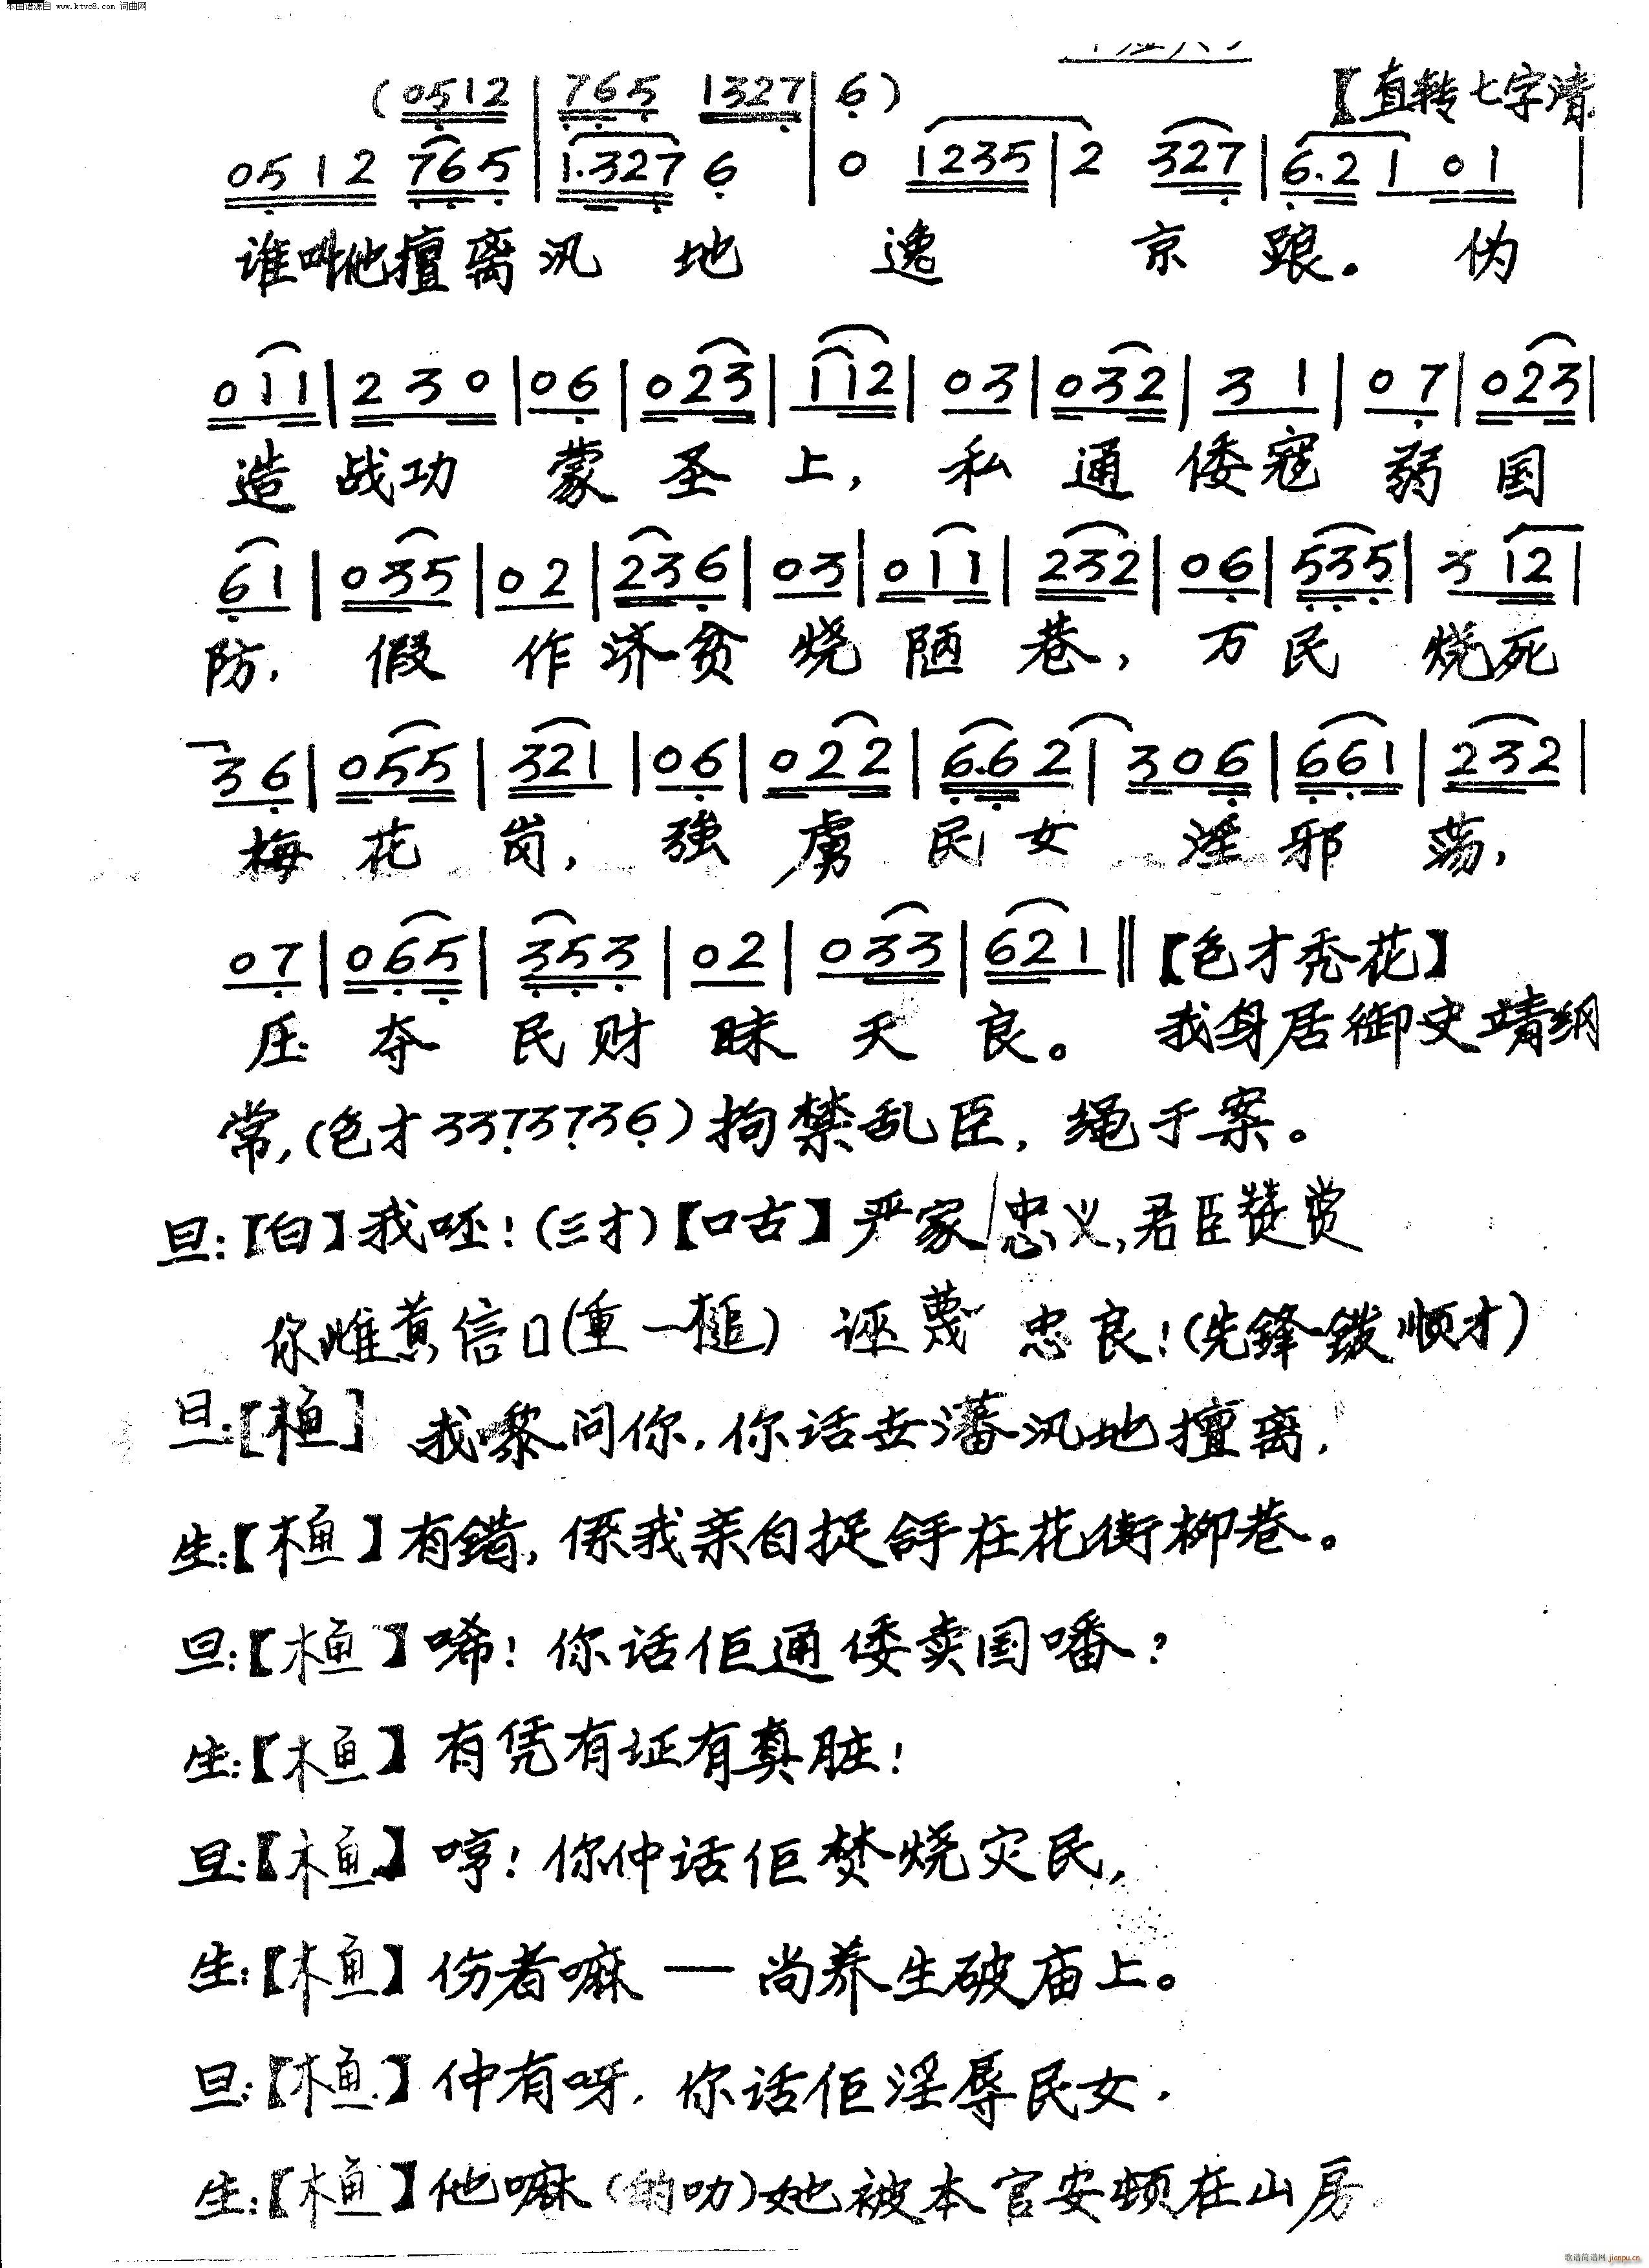 本曲谱源自 www.ktvc8.com 词曲网
(0512 | 765 1327 | 6) 【直转七字清
0512 765 | 1.327 6 | 0 1235 | 2 327 | 6.2 1 01 |
谁叫他擅离汛地逸京踉。伪
011 | 230 | 06 | 023 | 112 | 03 | 032 | 31 | 07 | 023 |
造战功蒙圣上,私通倭寇弱国
61 | 035 | 02 | 236 | 03 | 011 | 232 | 06 | 535 | 312 |
防,假作济贫烧陋巷,万民烧死
36 | 055 | 321 | 06 | 022 | 6.62 | 306 | 661 | 232 |
梅花岗,強虏民女淫邪荡,
07 | 065 | 353 | 02 | 033 | 621 || 【色才秃花】
压夺民财昧天良。 我身居御史靖纲
常,(色才3373736)拘禁乱臣,绳于案。
旦:【白】我呸!(三才)【口古】严家忠义,君臣赞赏
你雌黄信口(重一槌) 诬蔑忠良!(先鋒鈸顺才)
旦:[木鱼] 我嚟问你,你话世潘汛地擅离,
生:【木鱼】有错,係我亲自捉佢在花街柳巷。
旦:【木鱼】唏!你话佢通倭卖国噃?
生:【木鱼】有凭有证有真脏!
旦:【木鱼】哼!你仲话佢焚烧灾民,
生:【木鱼】伤者嘛 — 尚养生破庙上。
旦:【木鱼】仲有呀,你话佢淫辱民女,
生:【木鱼】他嘛(的叻)她被本官安顿在山房
歌谱简谱网 jianpu.cn